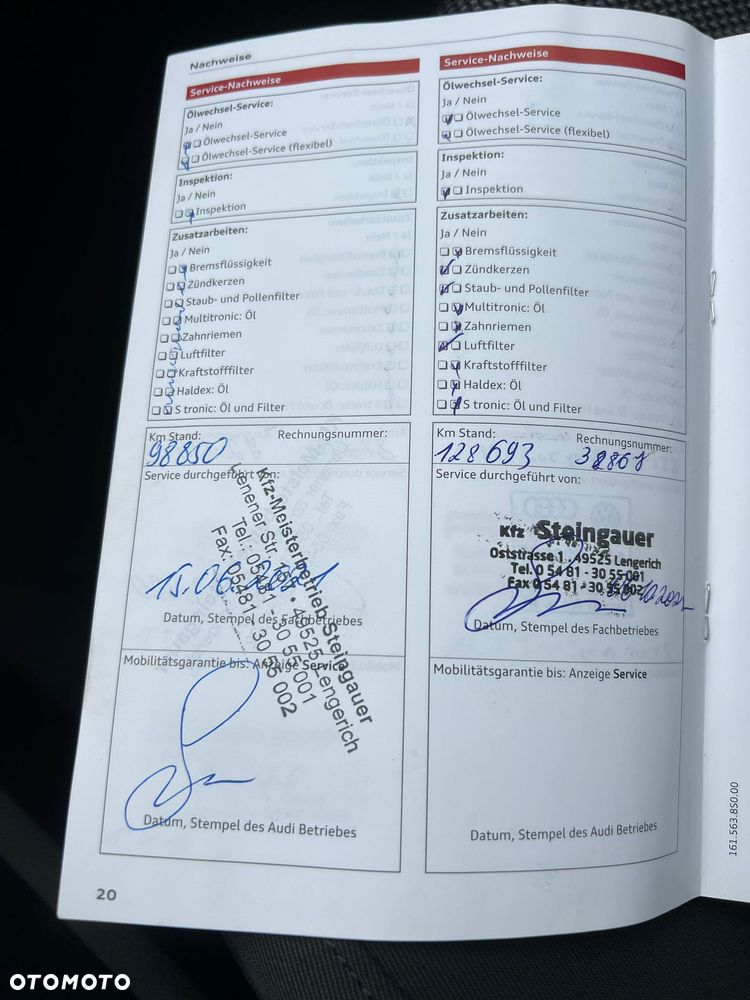 Nachweise
Service-Nachweise
Ölwechsel-Service:
Ja / Nein
Ölwechsel-Service
Ölwechsel-Service (flexibel)
Inspektion:
Ja / Nein
Inspektion
Zusatzarbeiten:
Ja / Nein
Bremsflüssigkeit
Zündkerzen
Staub- und Pollenfilter
Multitronic: Öl
Zahnriemen
Luftfilter
Kraftstofffilter
Haldex: Öl
S tronic: Öl und Filter
Km Stand:
Rechnungsnummer:
98850
Service durchgeführt von:
Kfz-Meisterbetrieb Steingauer
Lienener Str. • 49525 Lengerich
Tel.: 05481 - 30 55 001
Fax: 05481 - 30 55 002
15.06.2021
Datum, Stempel des Fachbetriebes
Mobilitätsgarantie bis: Anzeige Service
Datum, Stempel des Audi Betriebes
20
Service-Nachweise
Ölwechsel-Service:
Ja / Nein
Ölwechsel-Service
Ölwechsel-Service (flexibel)
Inspektion:
Ja / Nein
Inspektion
Zusatzarbeiten:
Ja / Nein
Bremsflüssigkeit
Zündkerzen
Staub- und Pollenfilter
Multitronic: Öl
Zahnriemen
Luftfilter
Kraftstofffilter
Haldex: Öl
S tronic: Öl und Filter
Km Stand:
Rechnungsnummer:
128693
Service durchgeführt von:
Kfz Steingauer
Oststrasse 1 . 49525 Lengerich
Tel. 0 54 81 - 30 55 001
Fax 0 54 81 - 30 55 002
Datum, Stempel des Fachbetriebes
Mobilitätsgarantie bis: Anzeige Service
Datum, Stempel des Audi Betriebes
161.563.8S0.00
OTOMOTO